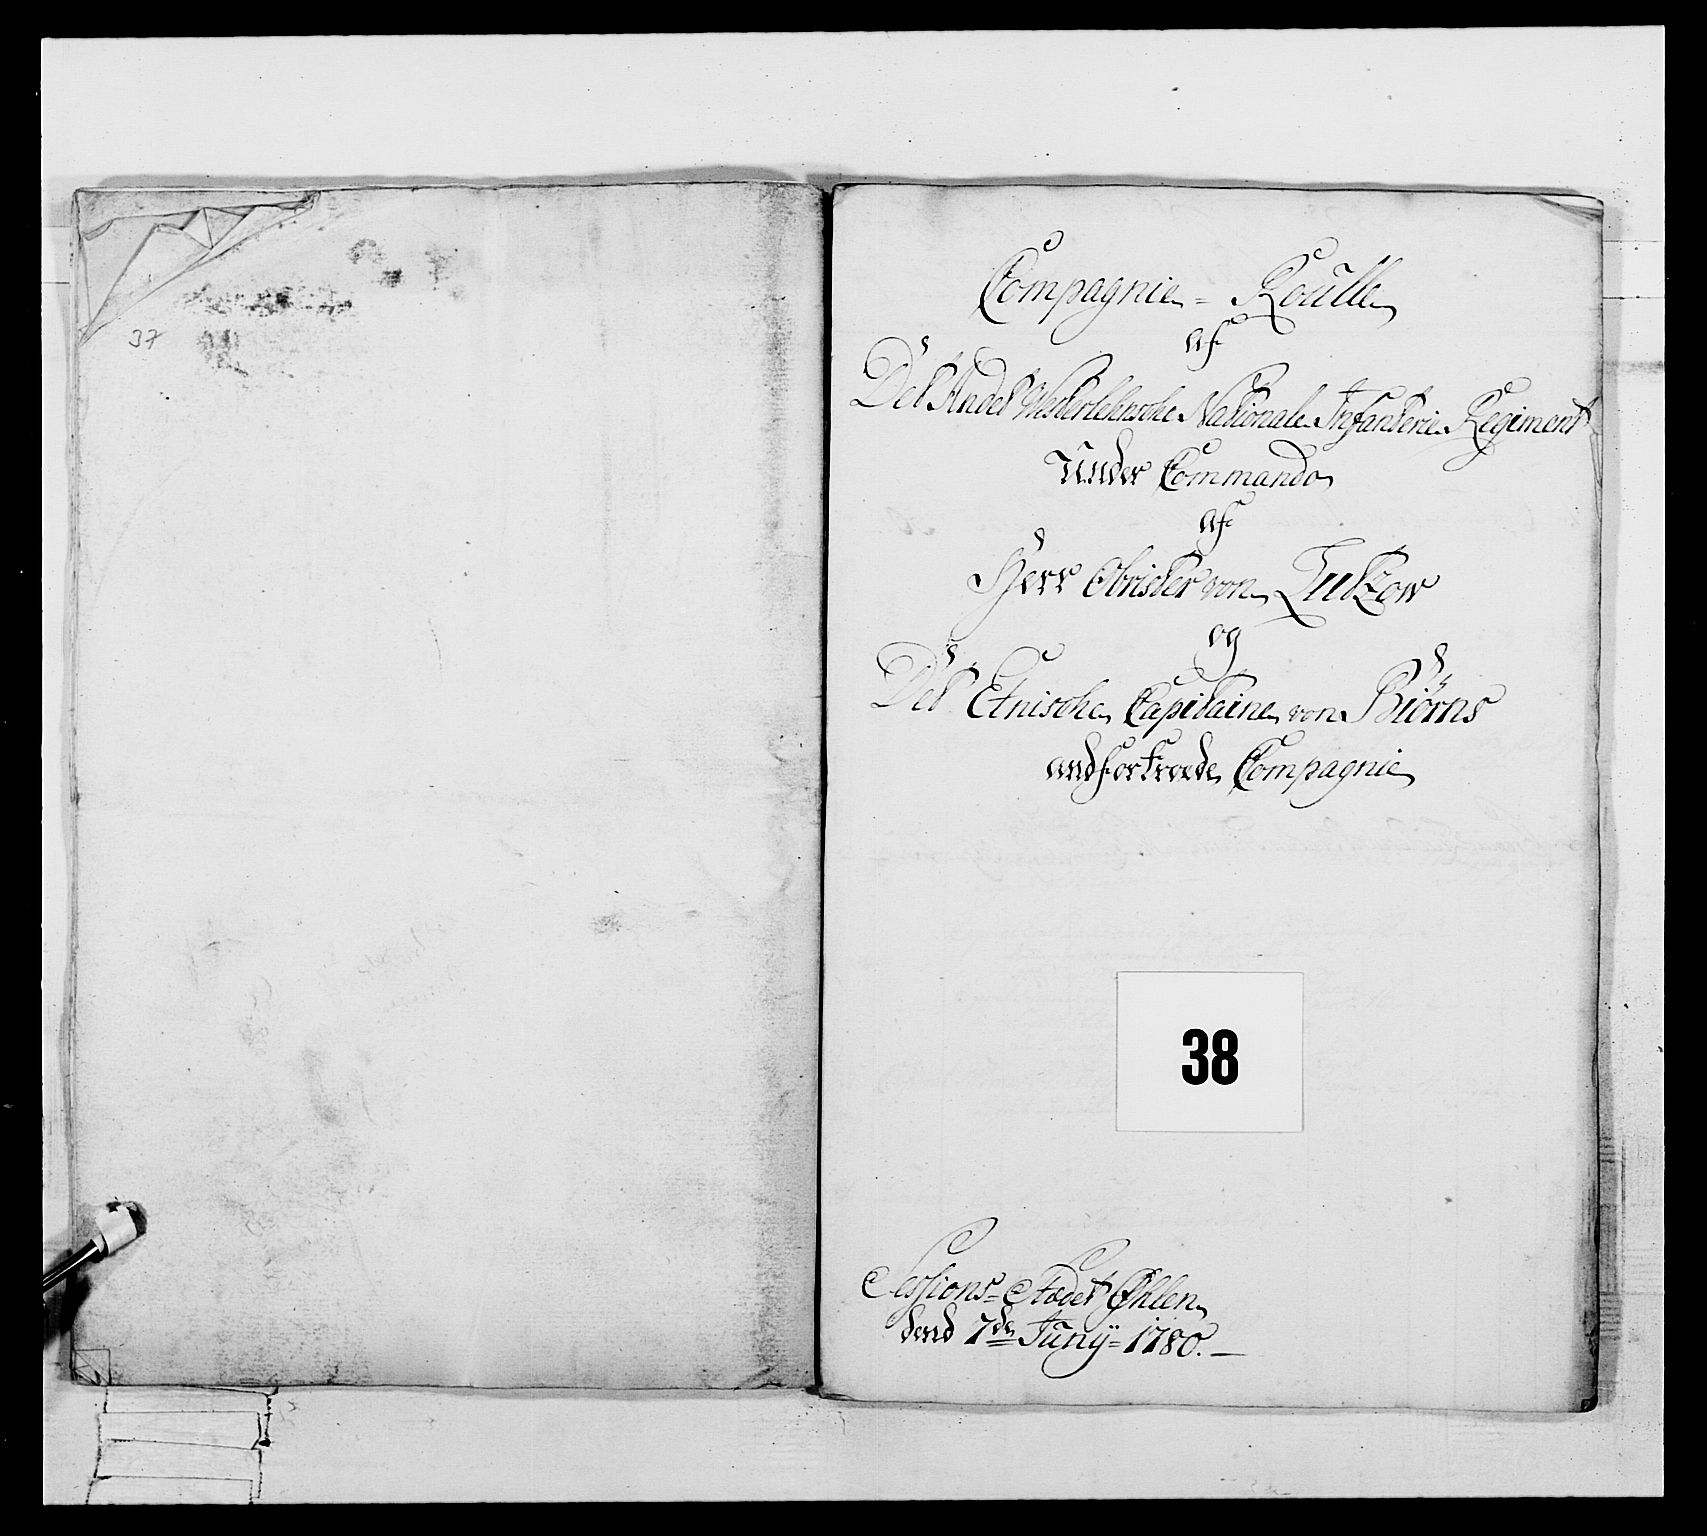 37
Compagnie = Roulle
af
Det Andet Westerlehnsche Nationale Infanterie Regiment
Under Commando
af
Herr Obrister von Lutzow
og
Det Etnische Capitaine von Biörns
andfortroede Compagnie
38
Sessions = Stædet Øhlen
dend 7de Junÿ = 1780.